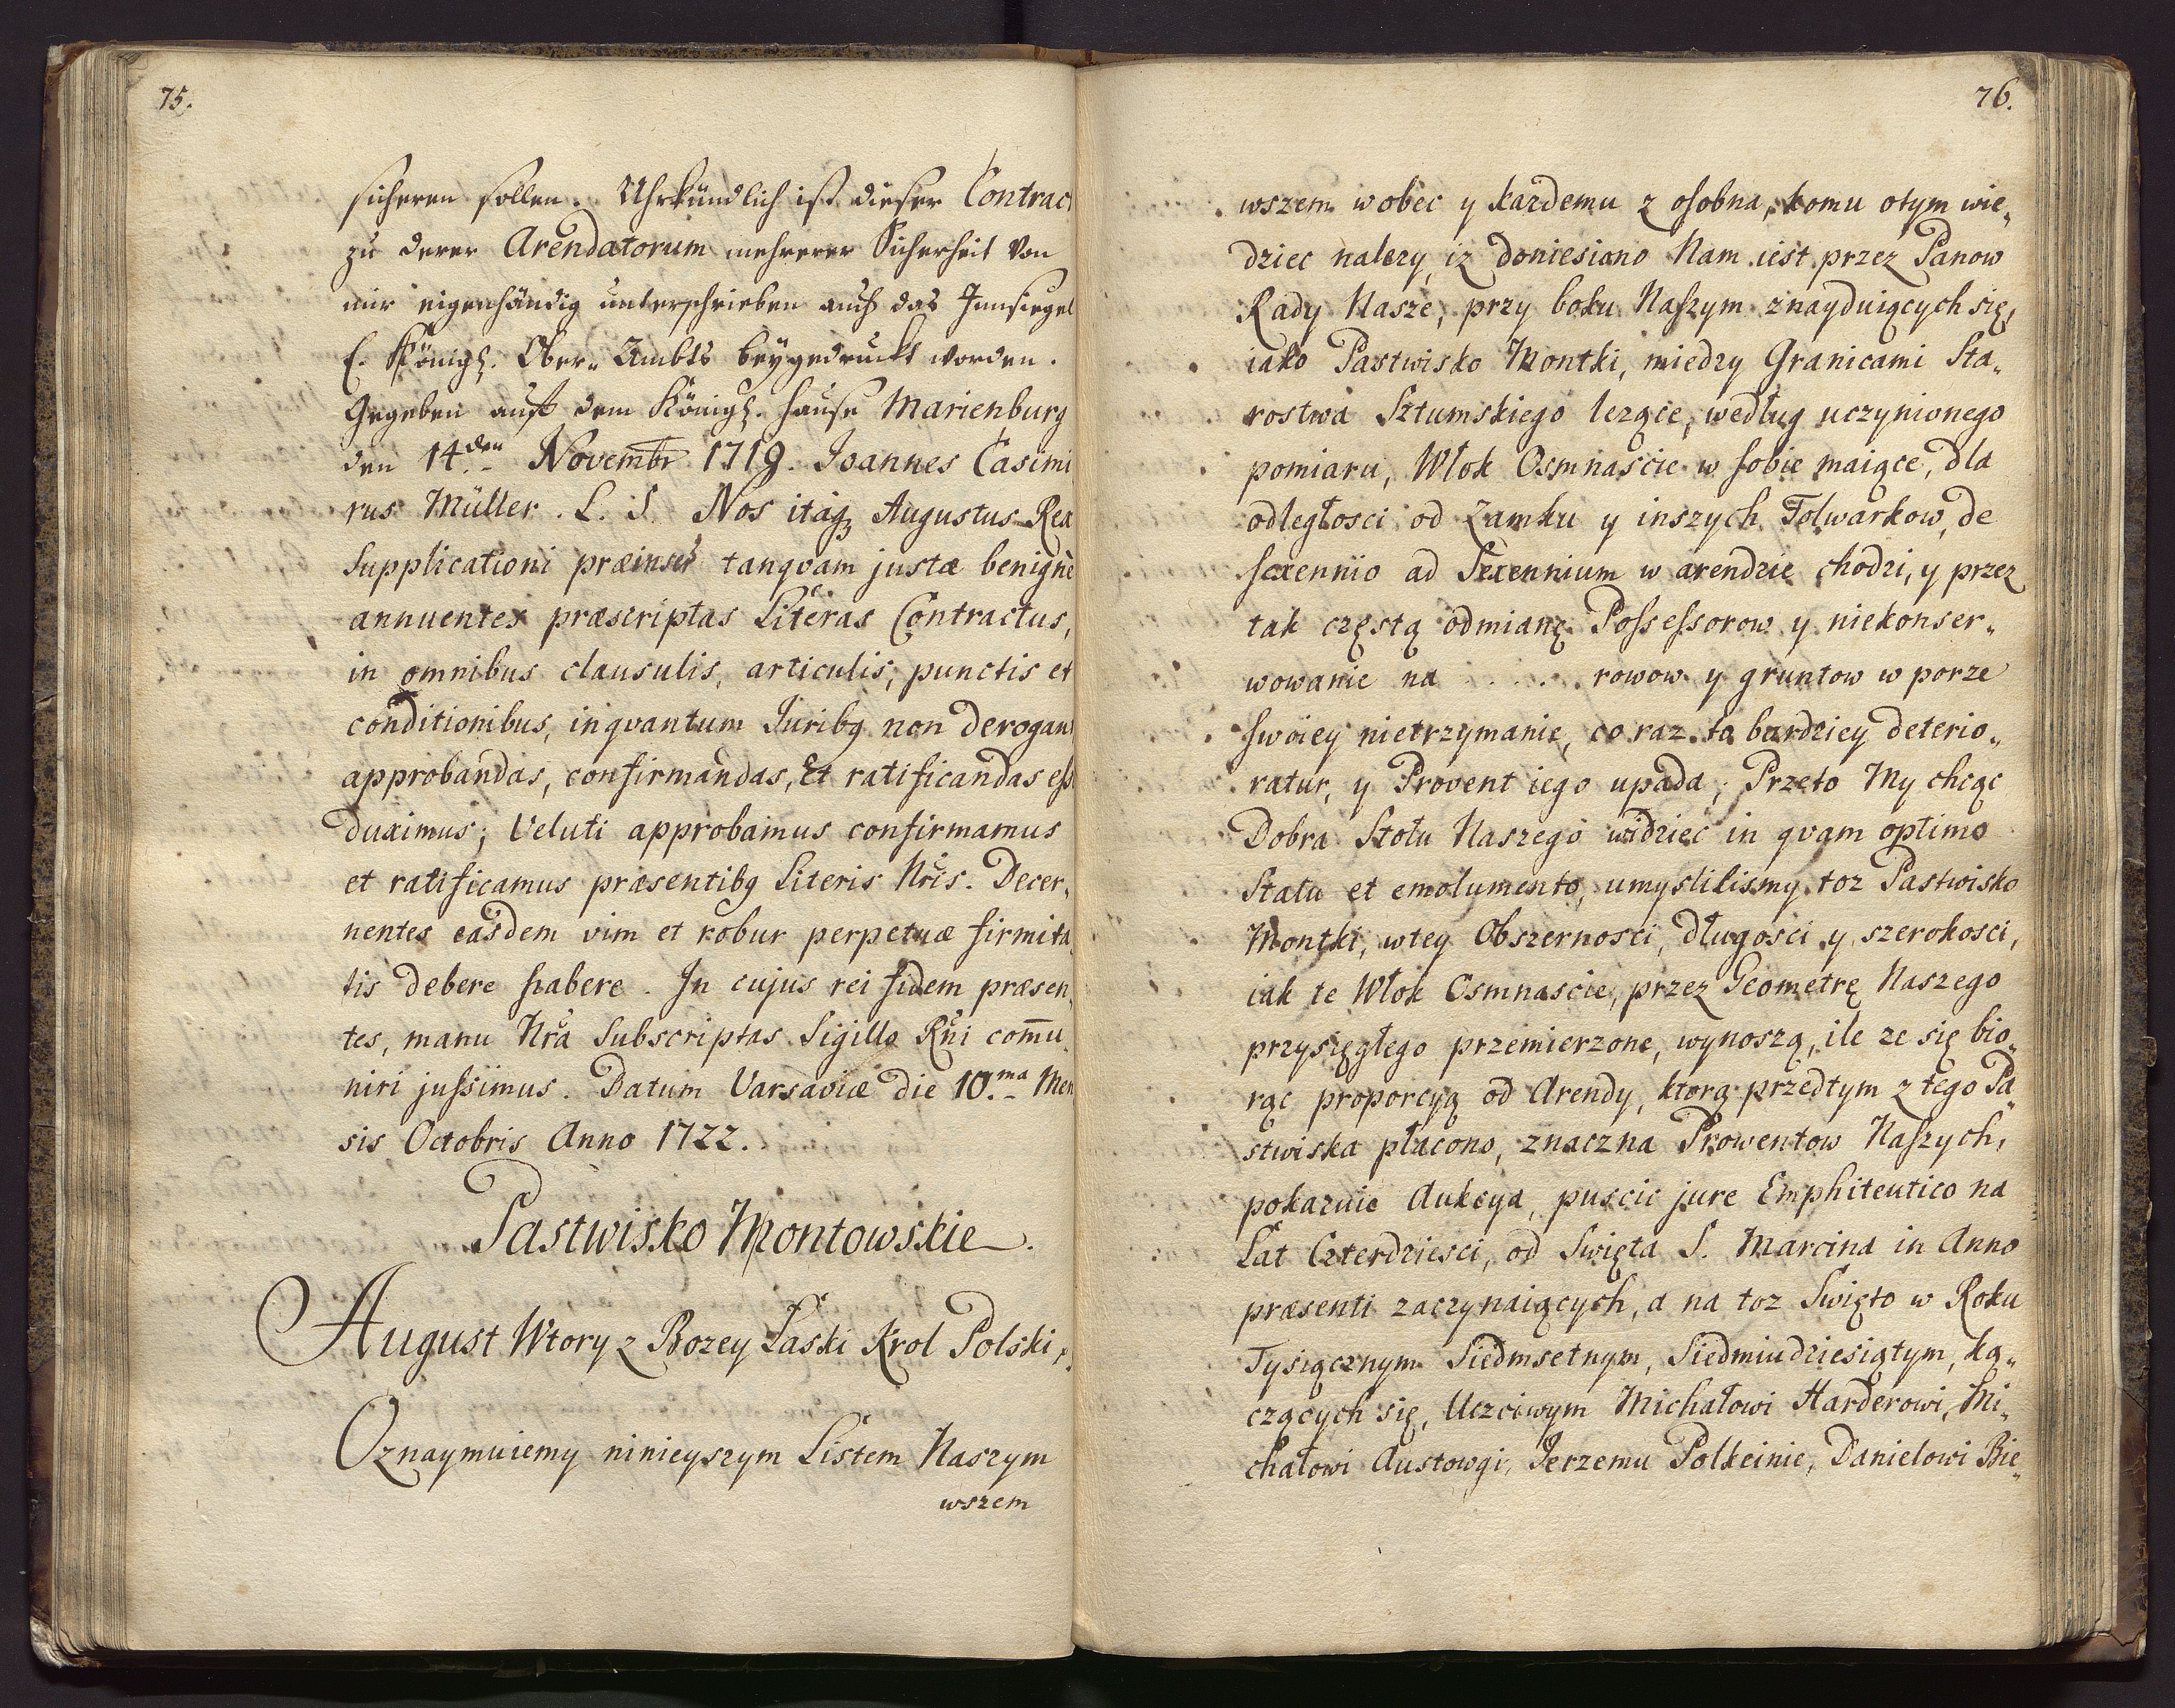 75.
sicheren sollen. Uhrkundlich ist dieser Contract
zu derer Arendatorum mehrerer Sicherheit von
mir eigenhändig unterschrieben auch das Innsiegel
E. Königl. Ober„ Ambts beygedruckt worden.
Gegeben auff dem Königl. Hause Marienburg
den 14.den Novembr 1719. Joannes Casimi
rus Müller. L. S. Nos itaq3 Augustus Rex
Supplicationi præinser tanqvam justæ benignè
annuentes præscriptas Literas Contractus,
in omnibus clausulis, articulis, punctis et
conditionibus, inqvantum Juribq non derogant
approbandas, confirmandas, et ratificandas esse
duximus; Veluti approbamus confirmamus
et ratificamus præsentibq Literis Nris. Decer„
nentes easdem vim et robur perpetuæ firmita„
tis debere habere. In cujus rei fidem præsen„
tes, manu Nra Subscriptas Sigillo Rni com̄u„
niri jussimus. Datum Varsaviæ die 10.ma Men
sis Octobris Anno 1722.
Pastwisko Montowskie.
August Wtory z Bozey Łaski Krol Polski,
Oznaymuiemy ninieyszym Listem Naszym
wszem
76.
wszem wobec y kazdemu z osobna, komu otym wie„
dziec nalezy, iz doniesiono Nam iest przez Panow
Rady Nasze, przy boku Naszym znayduiących się,
iako Pastwisko Montki, miedzy Granicami Sta„
rostwa Sztumskiego lezące, według uczynionego
pomiaru, Włok Osmnascie w sobie maiące, dla
odległosci od Zamku y inszych Folwarkow, de
sexennio ad Sexennium w arendzie chodzi, y przez
tak częstą odmianę Possessorow y niekonser„
wowanie na ..... rowow y gruntow w porze
swoiey nietrzymanie, co raz to bardziey deterio„
ratur, y Provent iego upada; Przeto My chcąc
Dobra Stołu Naszego widziec in qvam optimo
Statu et emolumento, umyslilismy toz Pastwisko
Montki, wtey Obszernosci, długosci y szerokosci,
iak te Włok Osmnascie, przez Geometrę Naszego
przysięgłego przemierzone, wynoszą, ile ze się bio„
rąc proporcyą od Arendy, ktorą przedtym z tego Pa„
stwiska płacono, znaczna Prowentow Naszych,
pokazuie Aukcya, puscic jure Emphiteutico na
Lat Czterdziesci, od Swięta S. Marcina in Anno
præsenti zaczynaiących, a na toz Swięto w Roku
Tysiącznym Siedmsetnym, Siedmiudziesiątym, ką„
czących się, Uczciwym Michałowi Harderowi, Mi„
chałowi Austowgi, Jerzemu Polkeinie, Danielowi Bie„